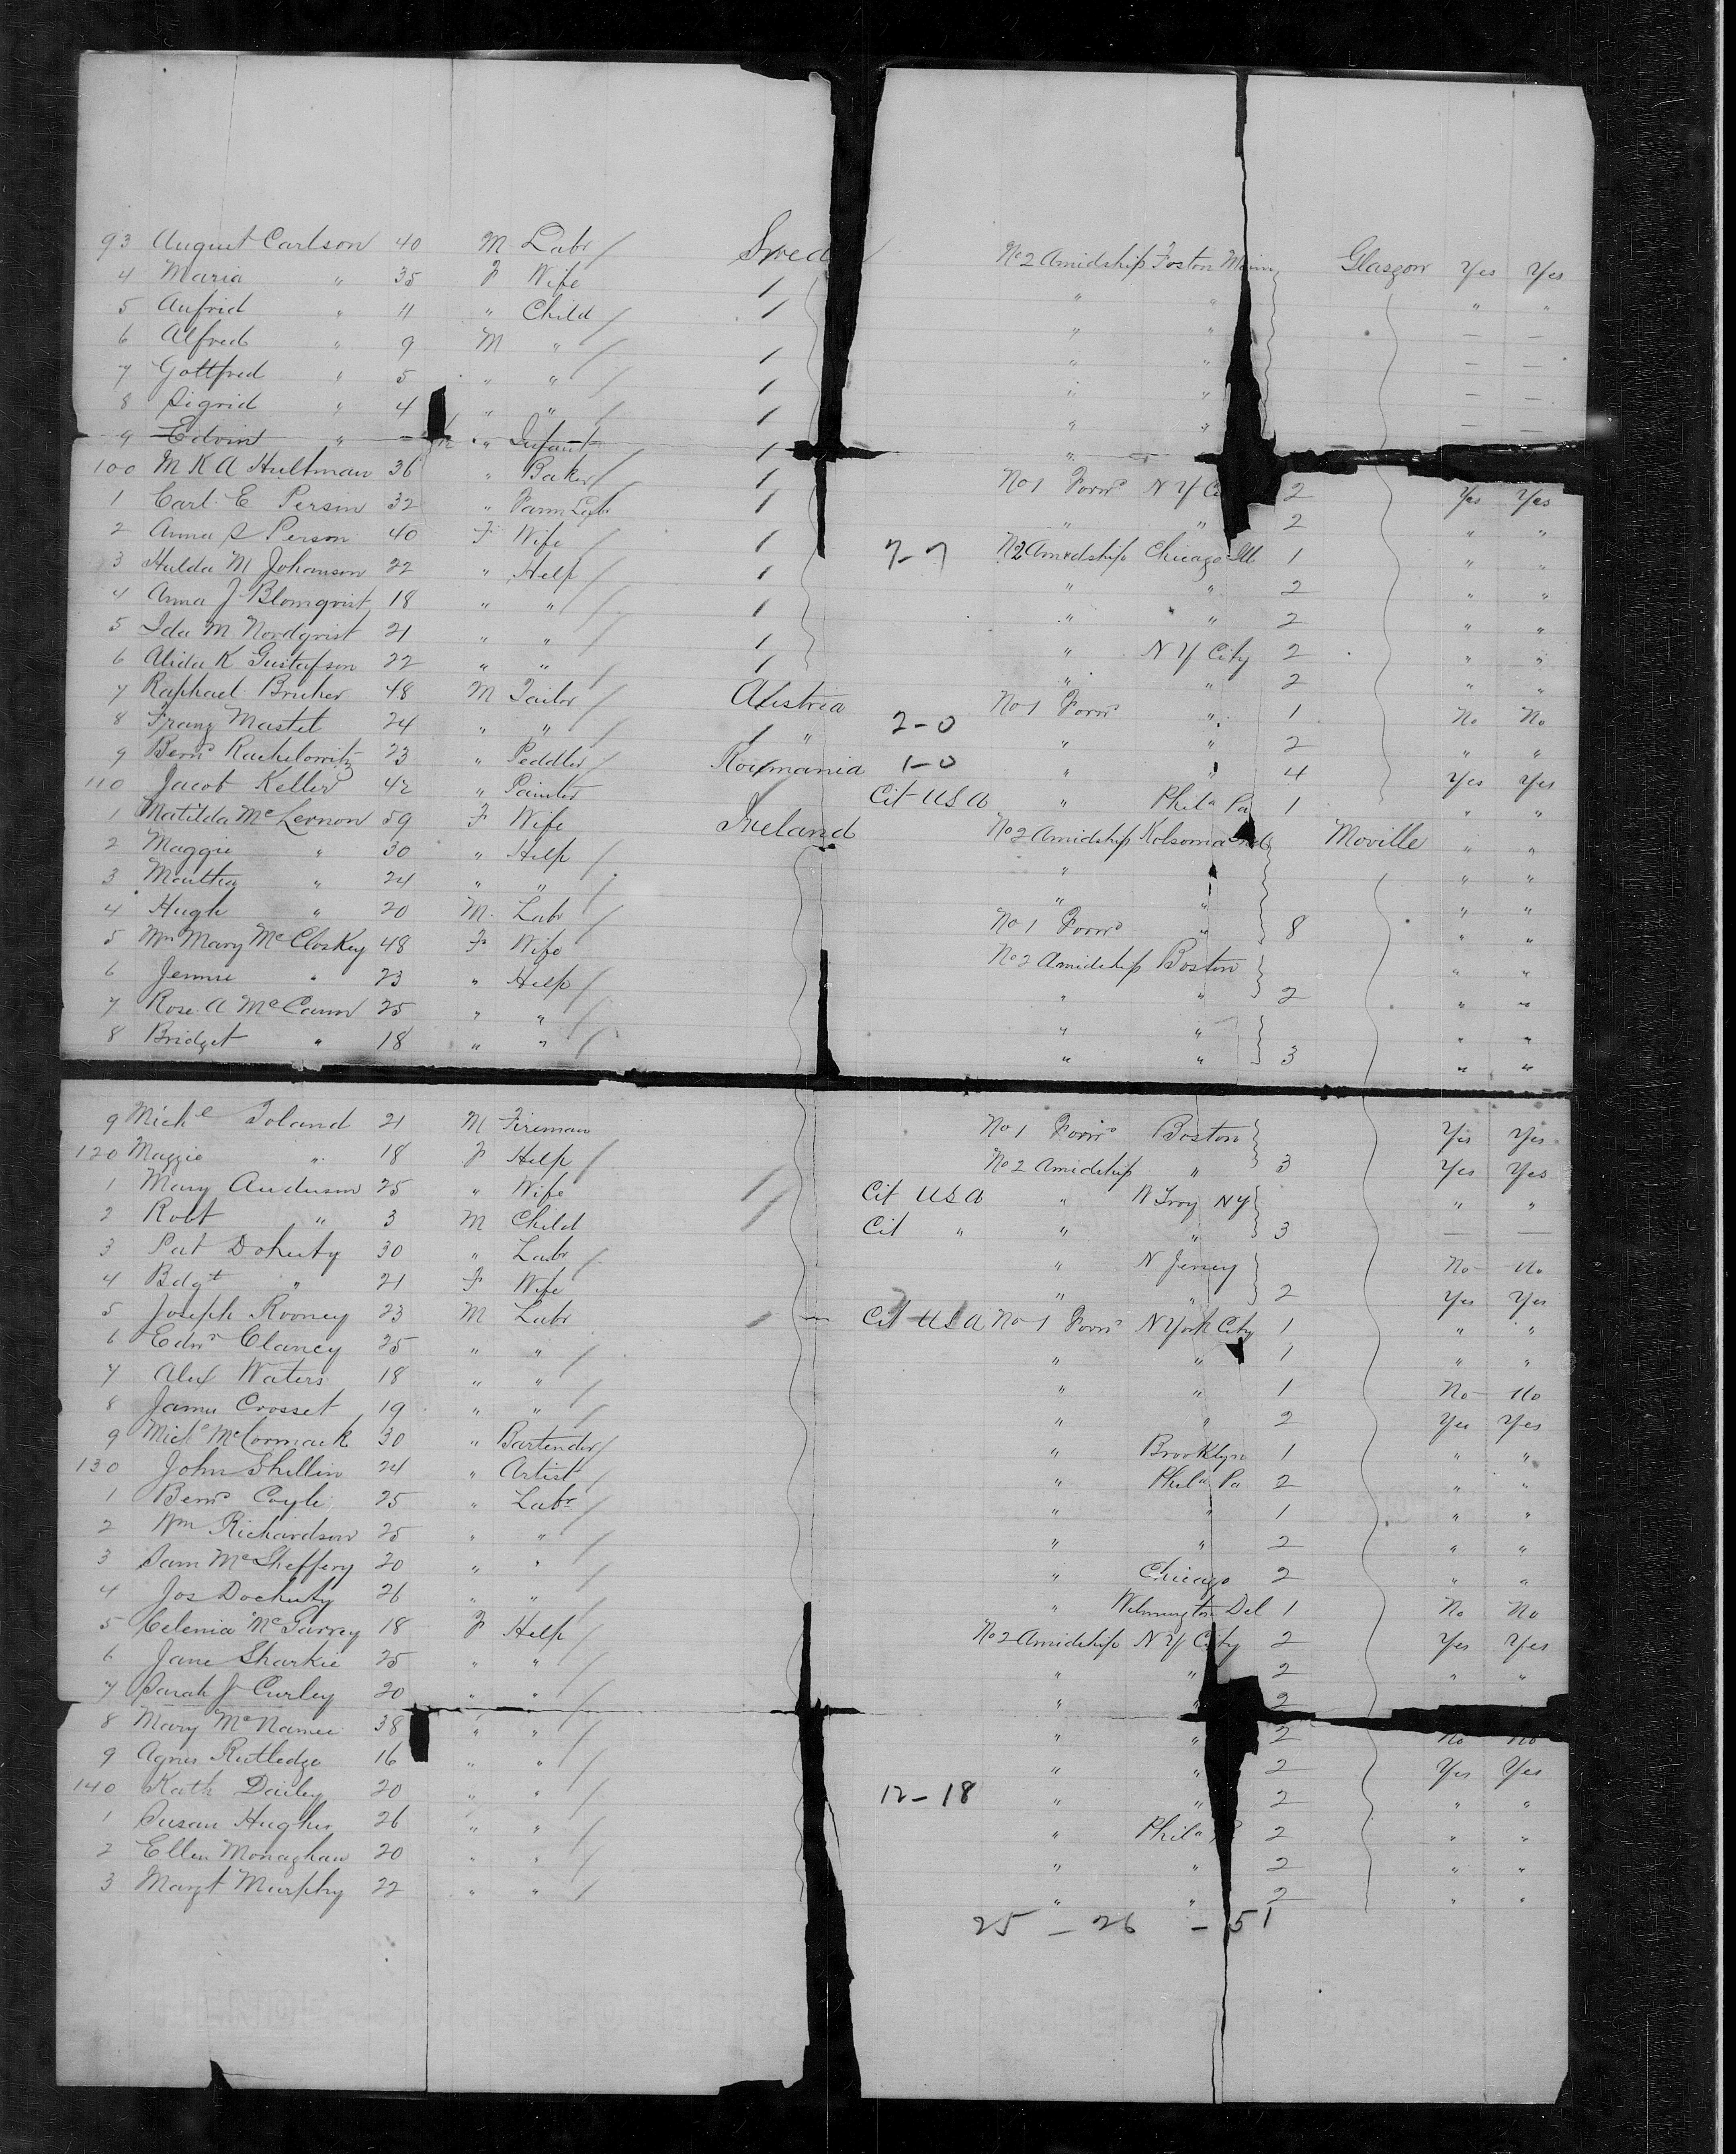 93 August Carlson 40 M Labr Swed No 2 Amidship Foston Minn Glasgow Yes Yes
4 Maria " 35 F Wife " " " "
5 Aufrid " 11 " Child " " — —
6 Alfred " 9 M " " " — —
7 Gottfred " 5 " " " " — —
8 Sigrid " 4 " " " " — —
9 Edvin " " Infant "
100 M K A Hultman 36 " Baker No 1 Forwd N Y C 2 Yes Yes
1 Carl E Persin 32 " Farm Labr " " 2 " "
2 Anna S Person 40 F Wife 7-7 No 2 Amidship Chicago Ill 1 " "
3 Hulda M Johanson 22 " Help " " 2 " "
4 Anna J Blomqvist 18 " " " " 2 " "
5 Ida M Nordqvist 21 " " " N Y City 2 " "
6 Alida K Gustafson 22 " " " " 2 " "
7 Raphael Bruher 48 M Tailor Austria No 1 Forwd " 1 No No
8 Franz Mastel 24 " " " 2-0 " " 2 " "
9 Bernd Rachelowitz 23 " Peddler Roumania 1-0 " " 4 Yes Yes
110 Jacob Keller 42 " Painter Cit USA " Phila Pa 1 " "
1 Matilda McLernon 59 F Wife Ireland No 2 Amidship Moville " "
2 Maggie " 30 " Help " " "
3 Martha " 24 " " " " " "
4 Hugh " 20 M Labr No 1 Forwd " 8 " "
5 Mary McCloskey 48 F Wife No 2 Amidship Boston " "
6 Jennie " 23 " Help " " 2 " "
7 Rose A McCann 25 " " " " " "
8 Bridget " 18 " " " " 3 " "
9 Michl Toland 21 M Fireman No 1 Forwd Boston Yes Yes
120 Maggie " 18 F Help No 2 Amidship " 3 Yes Yes
1 Mary Anderson 25 " Wife Cit USA " W Troy NY " "
2 Robt " 3 M Child Cit " " " 3 — —
3 Pat Doherty 30 " Labr " N Jersey No No
4 Bdgt " 21 F Wife " " 2 Yes Yes
5 Joseph Rooney 23 M Labr — Cit USA No 1 Forwd N York City 1 " "
6 Edwd Clancy 25 " " " " 1 " "
7 Alex Waters 18 " " " " 1 No No
8 James Crosset 19 " " " " 2 Yes Yes
9 Michl McCormack 30 " Bartender " Brooklyn 1 " "
130 John Shellin 24 " Artist " Phila Pa 2 " "
1 Bernd Coyle 25 " Labr " " 1 " "
2 Wm Richardson 25 " " " " 2 " "
3 Sam McSheffery 20 " " " Chicago 2 " "
4 Jos Docherty 26 " " " Wilmington Del 1 No No
5 Celenia McGarvey 18 F Help No 2 Amidship N Y City 2 Yes Yes
6 Jane Sharkie 25 " " " " 2 " "
7 Sarah J Curley 20 " " " " 2
8 Mary McNamee 38 " " " " 2 No No
9 Agnes Rutledge 16 " " " " 2 Yes Yes
140 Kath Dailey 20 " " 12-18 " " 2 " "
1 Susan Hughes 26 " " " Phila 2 " "
2 Ellen Monaghan 20 " " " " 2 " "
3 Margt Murphy 22 " " " " 2 " "
25 — 26 — 51